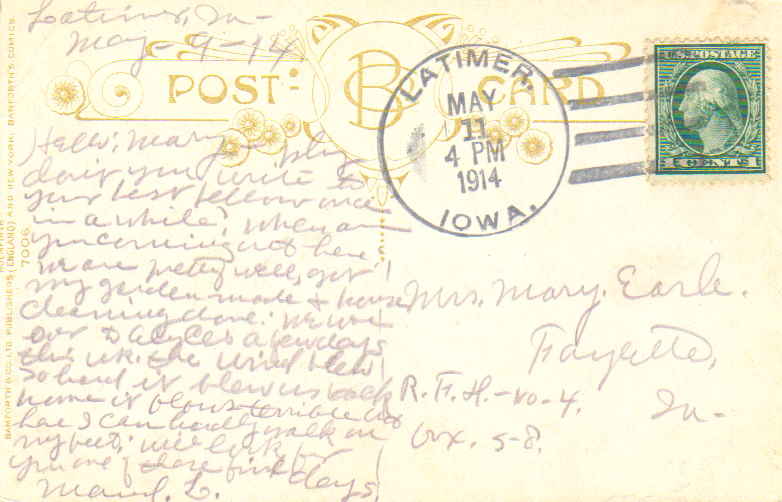 Latimer, Ia-
May-9-14
POST CARD
BC
LATIMER,
MAY
11
4 PM
1914
IOWA.
U.S. POSTAGE
CENTS
Hello: Mary- why
don't you write to
your best fellow once
in a while? When are
you coming out here
we are pretty well, got
my garden made & house
cleaning done. We were
over to a few days
this wk. the wind blew
so hard it blew us back
home it blows terrible
here I can hardly walk on
my feet. will look for
you one of these fine days,
Maud. L.
Mrs. Mary. Earle.
Fayette,
R.F.H.-no-4. Ia-
box. 5-8.
BAMFORTH & CO. LTD. PUBLISHERS (ENGLAND) AND NEW YORK. BAMFORTH'S COMICS.
7006